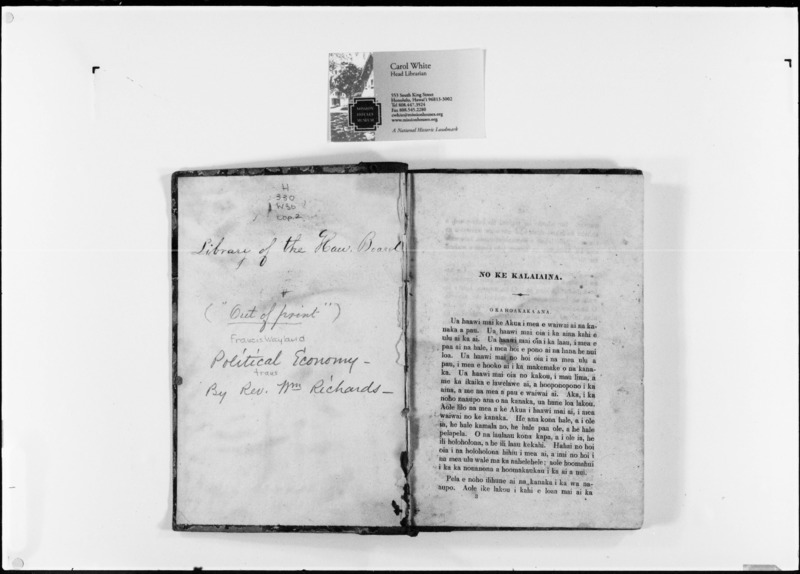 Carol White
Head Librarian
553 South King Street
Honolulu, Hawai'i 96813-3002
Tel 808.447.3924
Fax 808.545.2280
cwhite@missionhouses.org
www.missionhouses.org
A National Historic Landmark
MISSION
HOUSES
MUSEUM
H
330
W36
cop.2
Library of the Haw. Board
("Out of print")
Francis Wayland
Political Economy—
trans
By Rev. Wm Richards—
NO KE KALAIAINA.
O KA HOIKAKA ANA
Ua haawi mai ke Akua i mea e waiwai ai na ka-
naka a pau. Ua haawi mai oia i ka aina kahi e
ulu ai ka ai. Ua haawi mai oia i ka laau, i mea e
paa ai na hale, i mea hoi e pono ai na hana he nui
loa. Ua haawi mai no hoi oia i na mea ulu a
pau, i mea e hooko ai i ka makemake o na kana-
ka. Ua haawi mai oia no kakou, i mau lima, a
me ka ikaika e lawelawe ai, a hooponopono i ka
aina, a me na mea a pau e waiwai ai. Aka, i ka
noho naaupo ana o na kanaka, ua hune loa lakou.
Aole lilo na mea a ke Akua i haawi mai ai, i mea
waiwai no ke kanaka. He ana kona hale, a i ole
ia, he hale kamala no, he hale pau ole, a he hale
pelapela. O na ili kona kapa, a i ole ia, he
ili holoholona, a he ili laau kekahi. Hahai no hoi
oia i na holoholona hihiu i mea ai, a imi no hoi i
na mea ulu wale ma ka nahelehele; aole hoomahui
i ka ka nonanona a hoomakaukau i ka ai a nui.
Pela e noho ilihune ai na kanaka i ka wa na-
aupo. Aole ike lakou i kahi e loaa mai ai ka